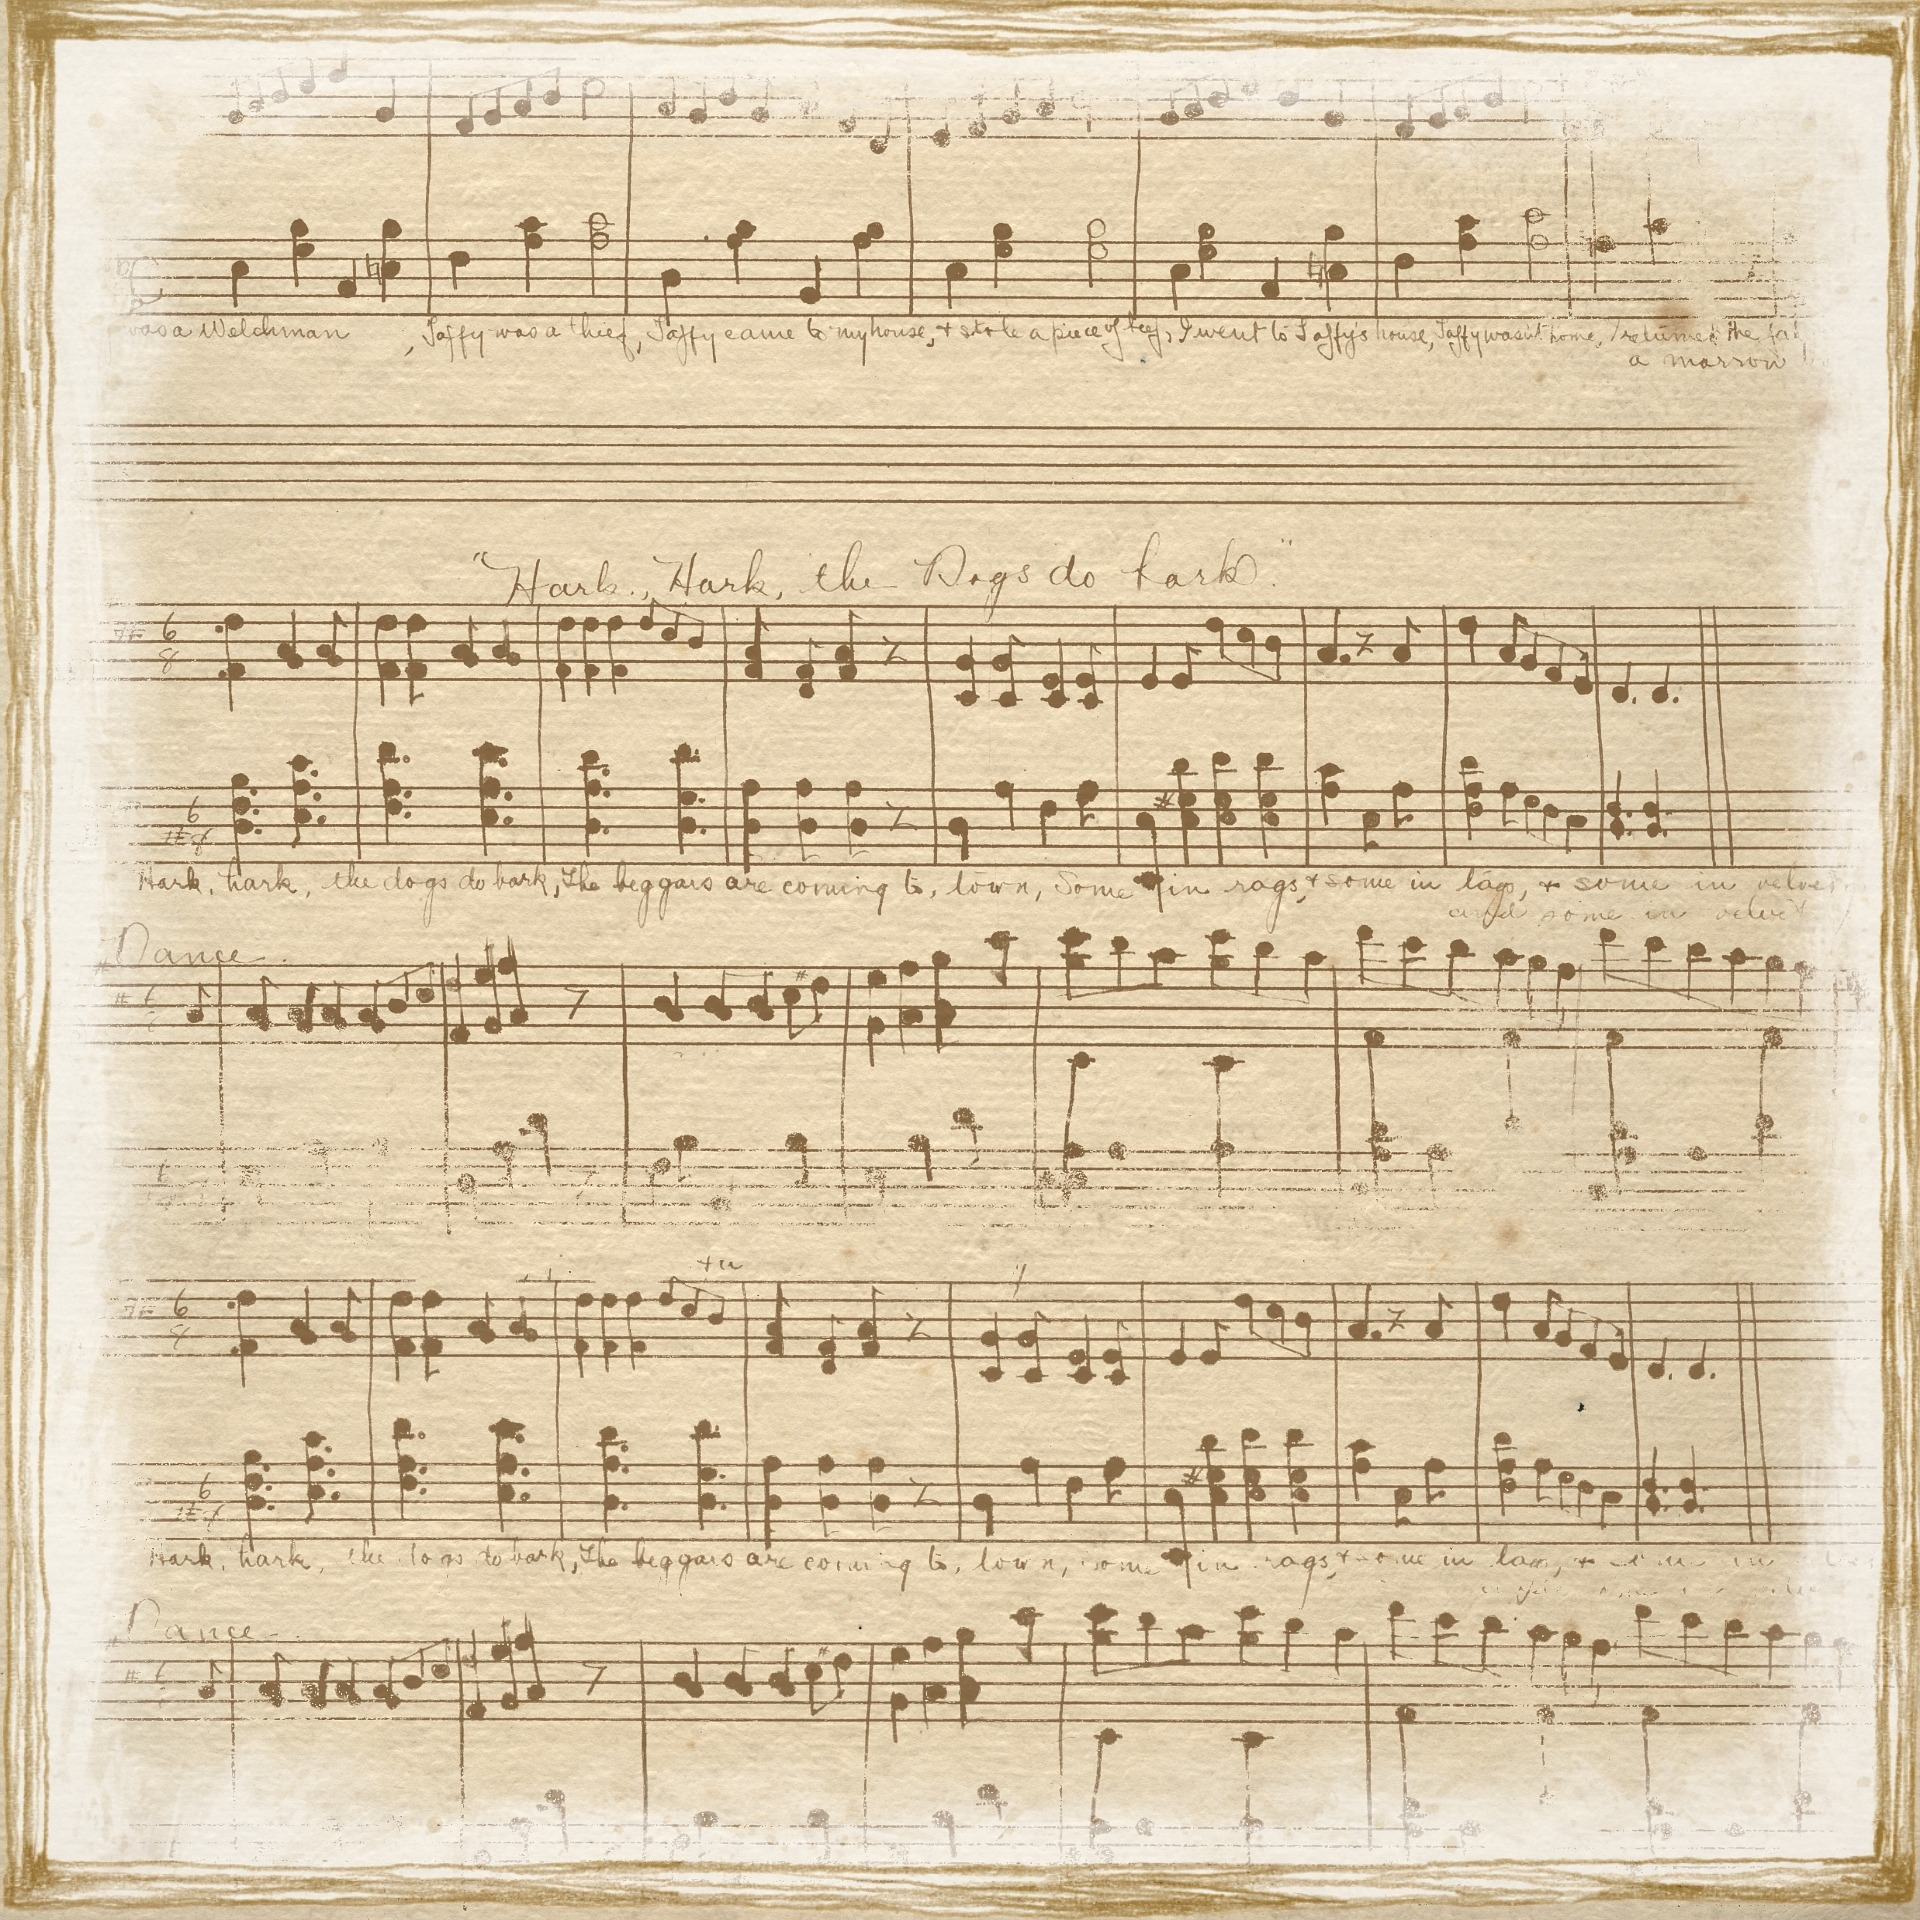 was a Welchman , Taffy was a thief, Taffy came to my house, & stole a piece of beef, I went to Taffy's house, Taffy wasn't home, I returned the
a marrow
"Hark, Hark, the Dogs do bark".
6
8
6
8
Hark, hark, the dogs do bark, The beggars are coming to, town, Some in rags & some in tags, & some in velvet
and some in velvet
Dance.
6
8
6
Hark, hark, the dogs do bark, The beggars are coming to, town, some in rags & some in tags, & in
Dance.